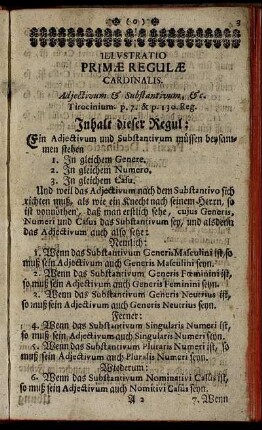 (o) 3
ILLUSTRATIO
PRIMÆ REGULÆ
CARDINALIS.
Adjectivum & Substantivum, &c.
Tirocinium. p. 7. & p. 130. Reg.
Inhalt dieser Regul:
Ein Adjectivum und Substantivum müssen beysam-
men stehen
1. In gleichem Genere.
2. In gleichem Numero,
3. In gleichem Casu.
Und weil das Adjectivum nach dem Substantivo sich
richten muß, als wie ein Knecht nach seinem Herrn, so
ist vonnöthen, daß man erstlich sehe, cujus Generis,
Numeri und Casus das Substantivum sey, und alsdenn
das Adjectivum auch also setze:
Nemlich:
1. Wenn das Substantivum Generis Masculini ist, so
muß sein Adjectivum auch Generis Masculini seyn.
2. Wenn das Substantivum Generis Fœminini ist,
so muß sein Adjectivum auch Generis Fœminini seyn.
3. Wenn das Substantivum Generis Neutrius ist,
so muß sein Adjectivum auch Generis Neutrius seyn.
Ferner:
4. Wenn das Substantivum Singularis Numeri ist,
so muß sein Adjectivum auch Singularis Numeri seyn.
5. Wenn das Substantivum Pluralis Numeri ist, so
muß sein Adjectivum auch Pluralis Numeri seyn.
Wiederum:
6. Wenn das Substantivum Nominativi Casus ist,
so muß sein Adjectivum auch Nomitivi Casus seyn.
A 2 7. Wenn